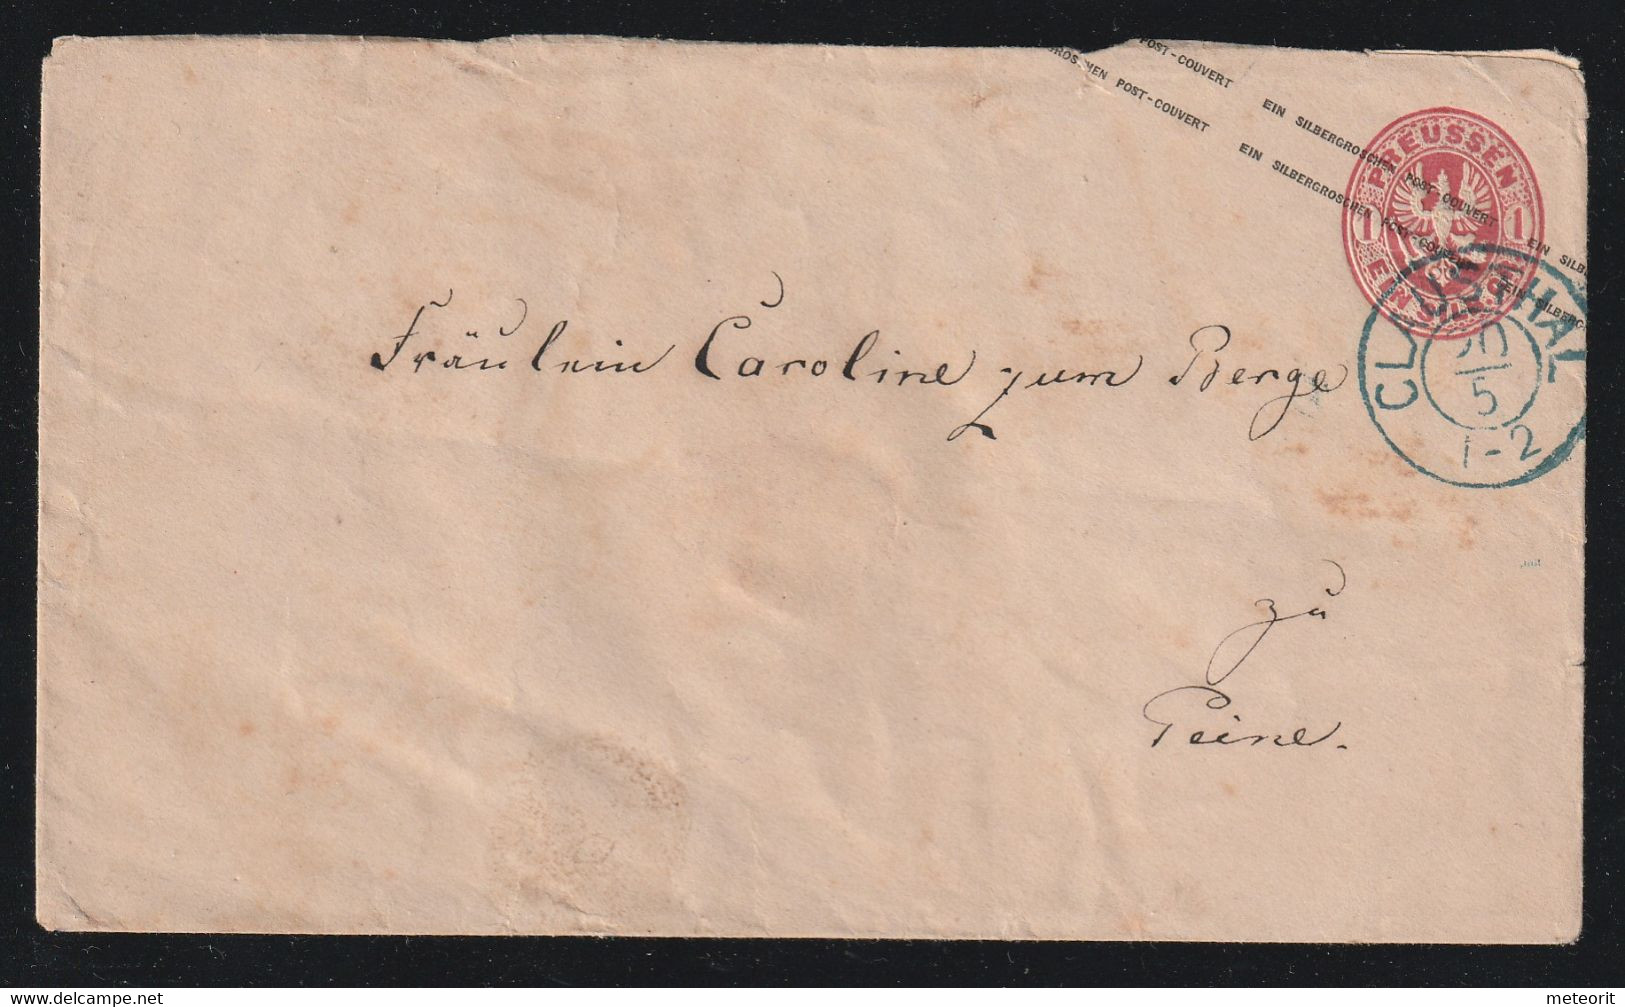 POST-COUVERT EIN SILBERGROSCHEN POST-COUVERT EIN SILB
GROSCHEN POST-COUVERT EIN SILBERGROSCHEN POST-COUVERT EIN SILBERG
PREUSSEN
1 1
EIN SILB.GR.
CLAUSTHAL
5
1-2
Fräulein Caroline zum Berge
zu
Peine.
delcampe.net
meteorit